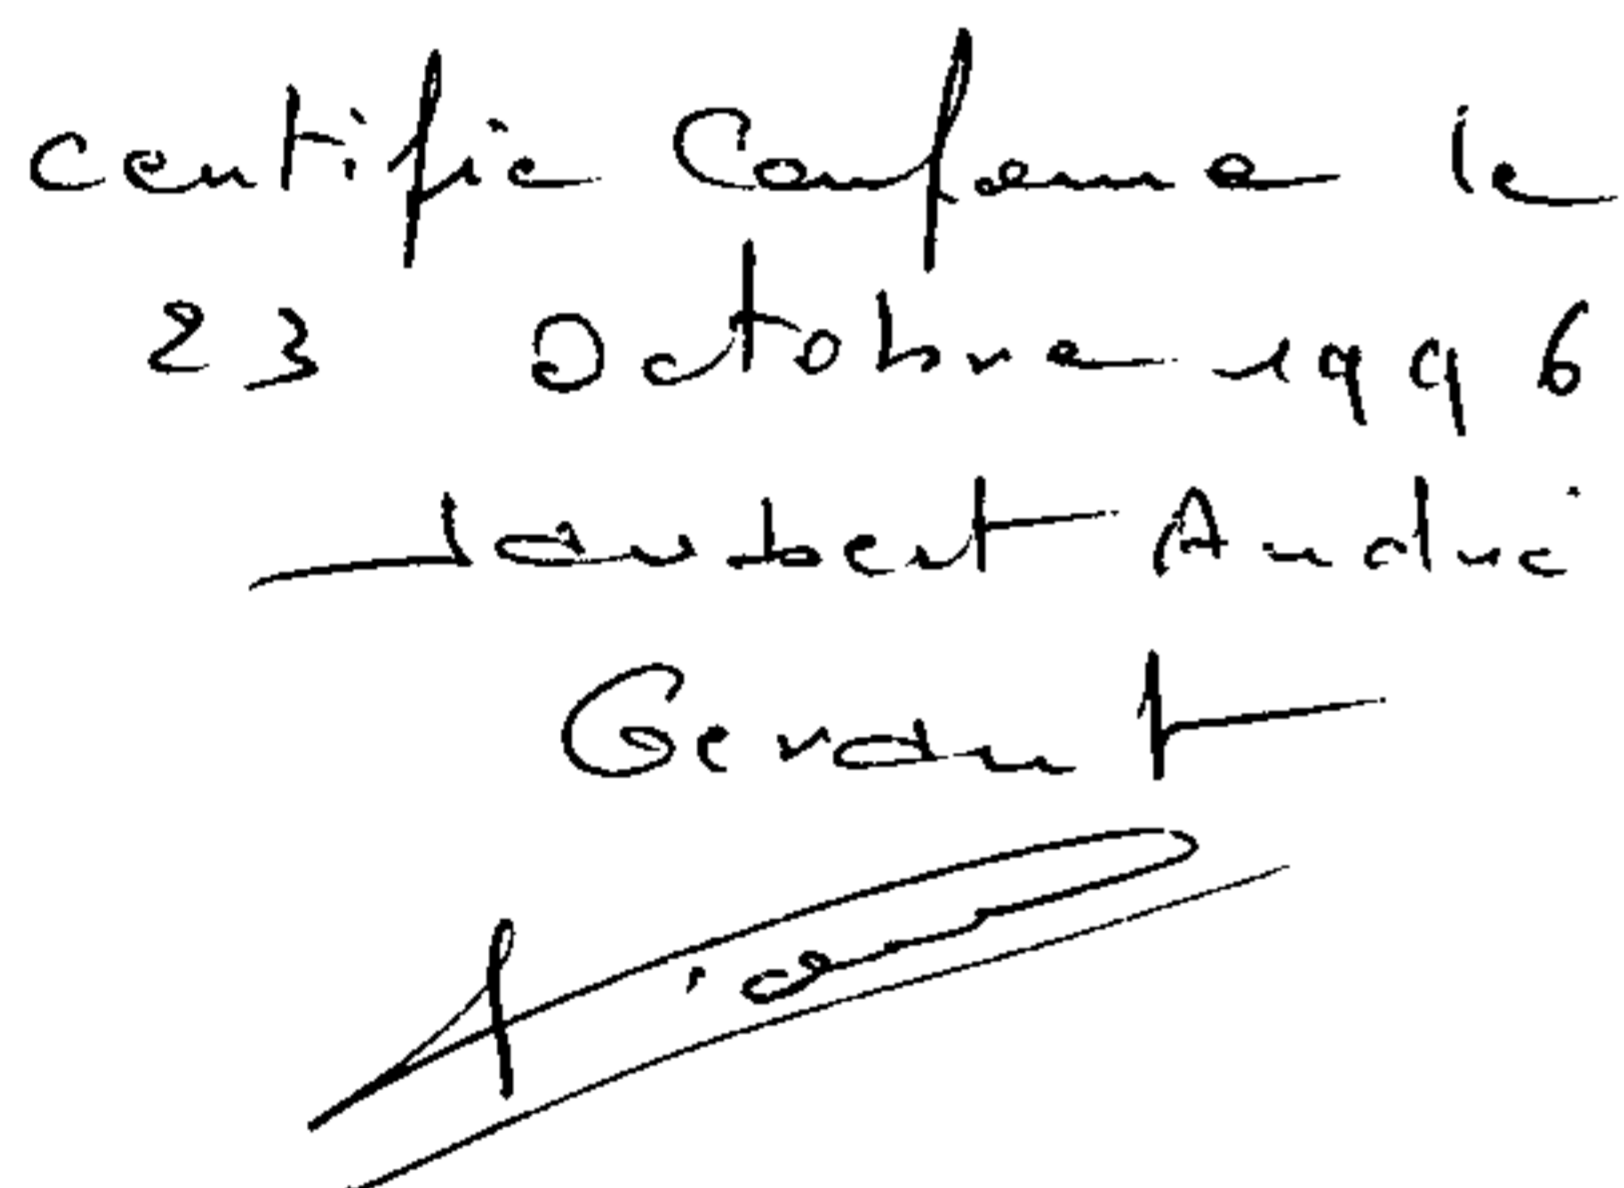 Certifié Conforme le
23 Octobre 1996
Jaubert André
Gerant